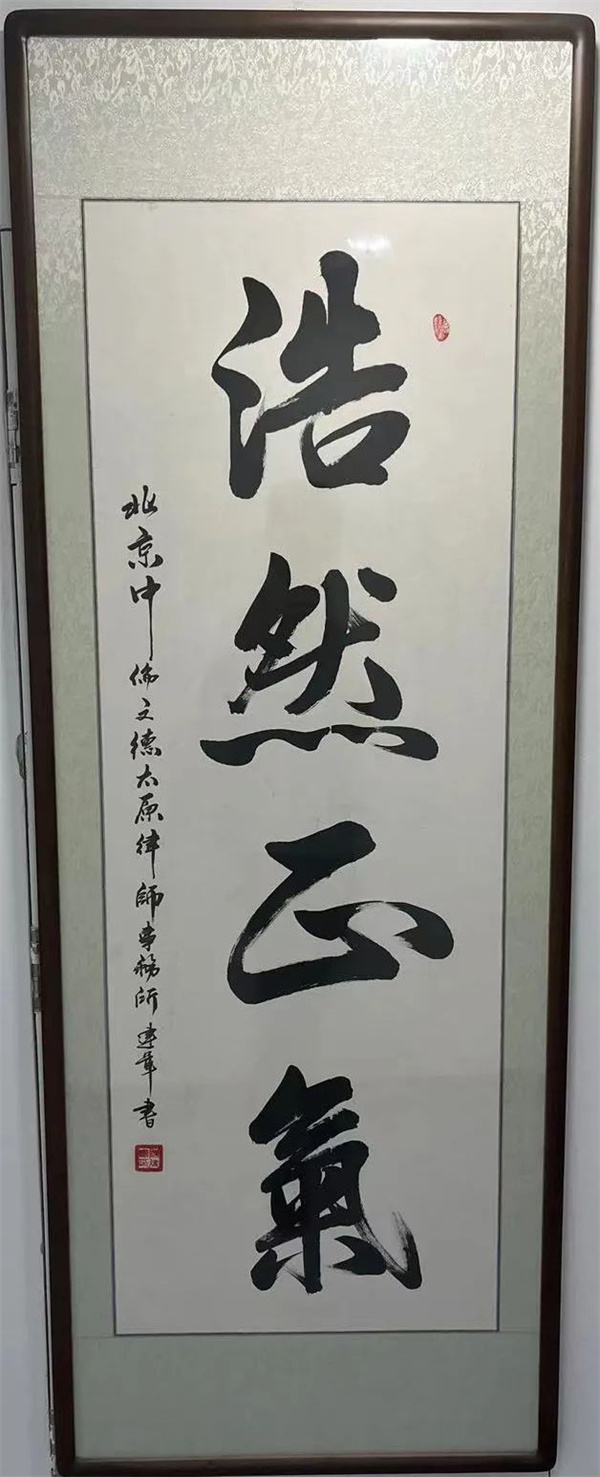 浩然正氣
北京中倫文德太原律師事務所 建華書